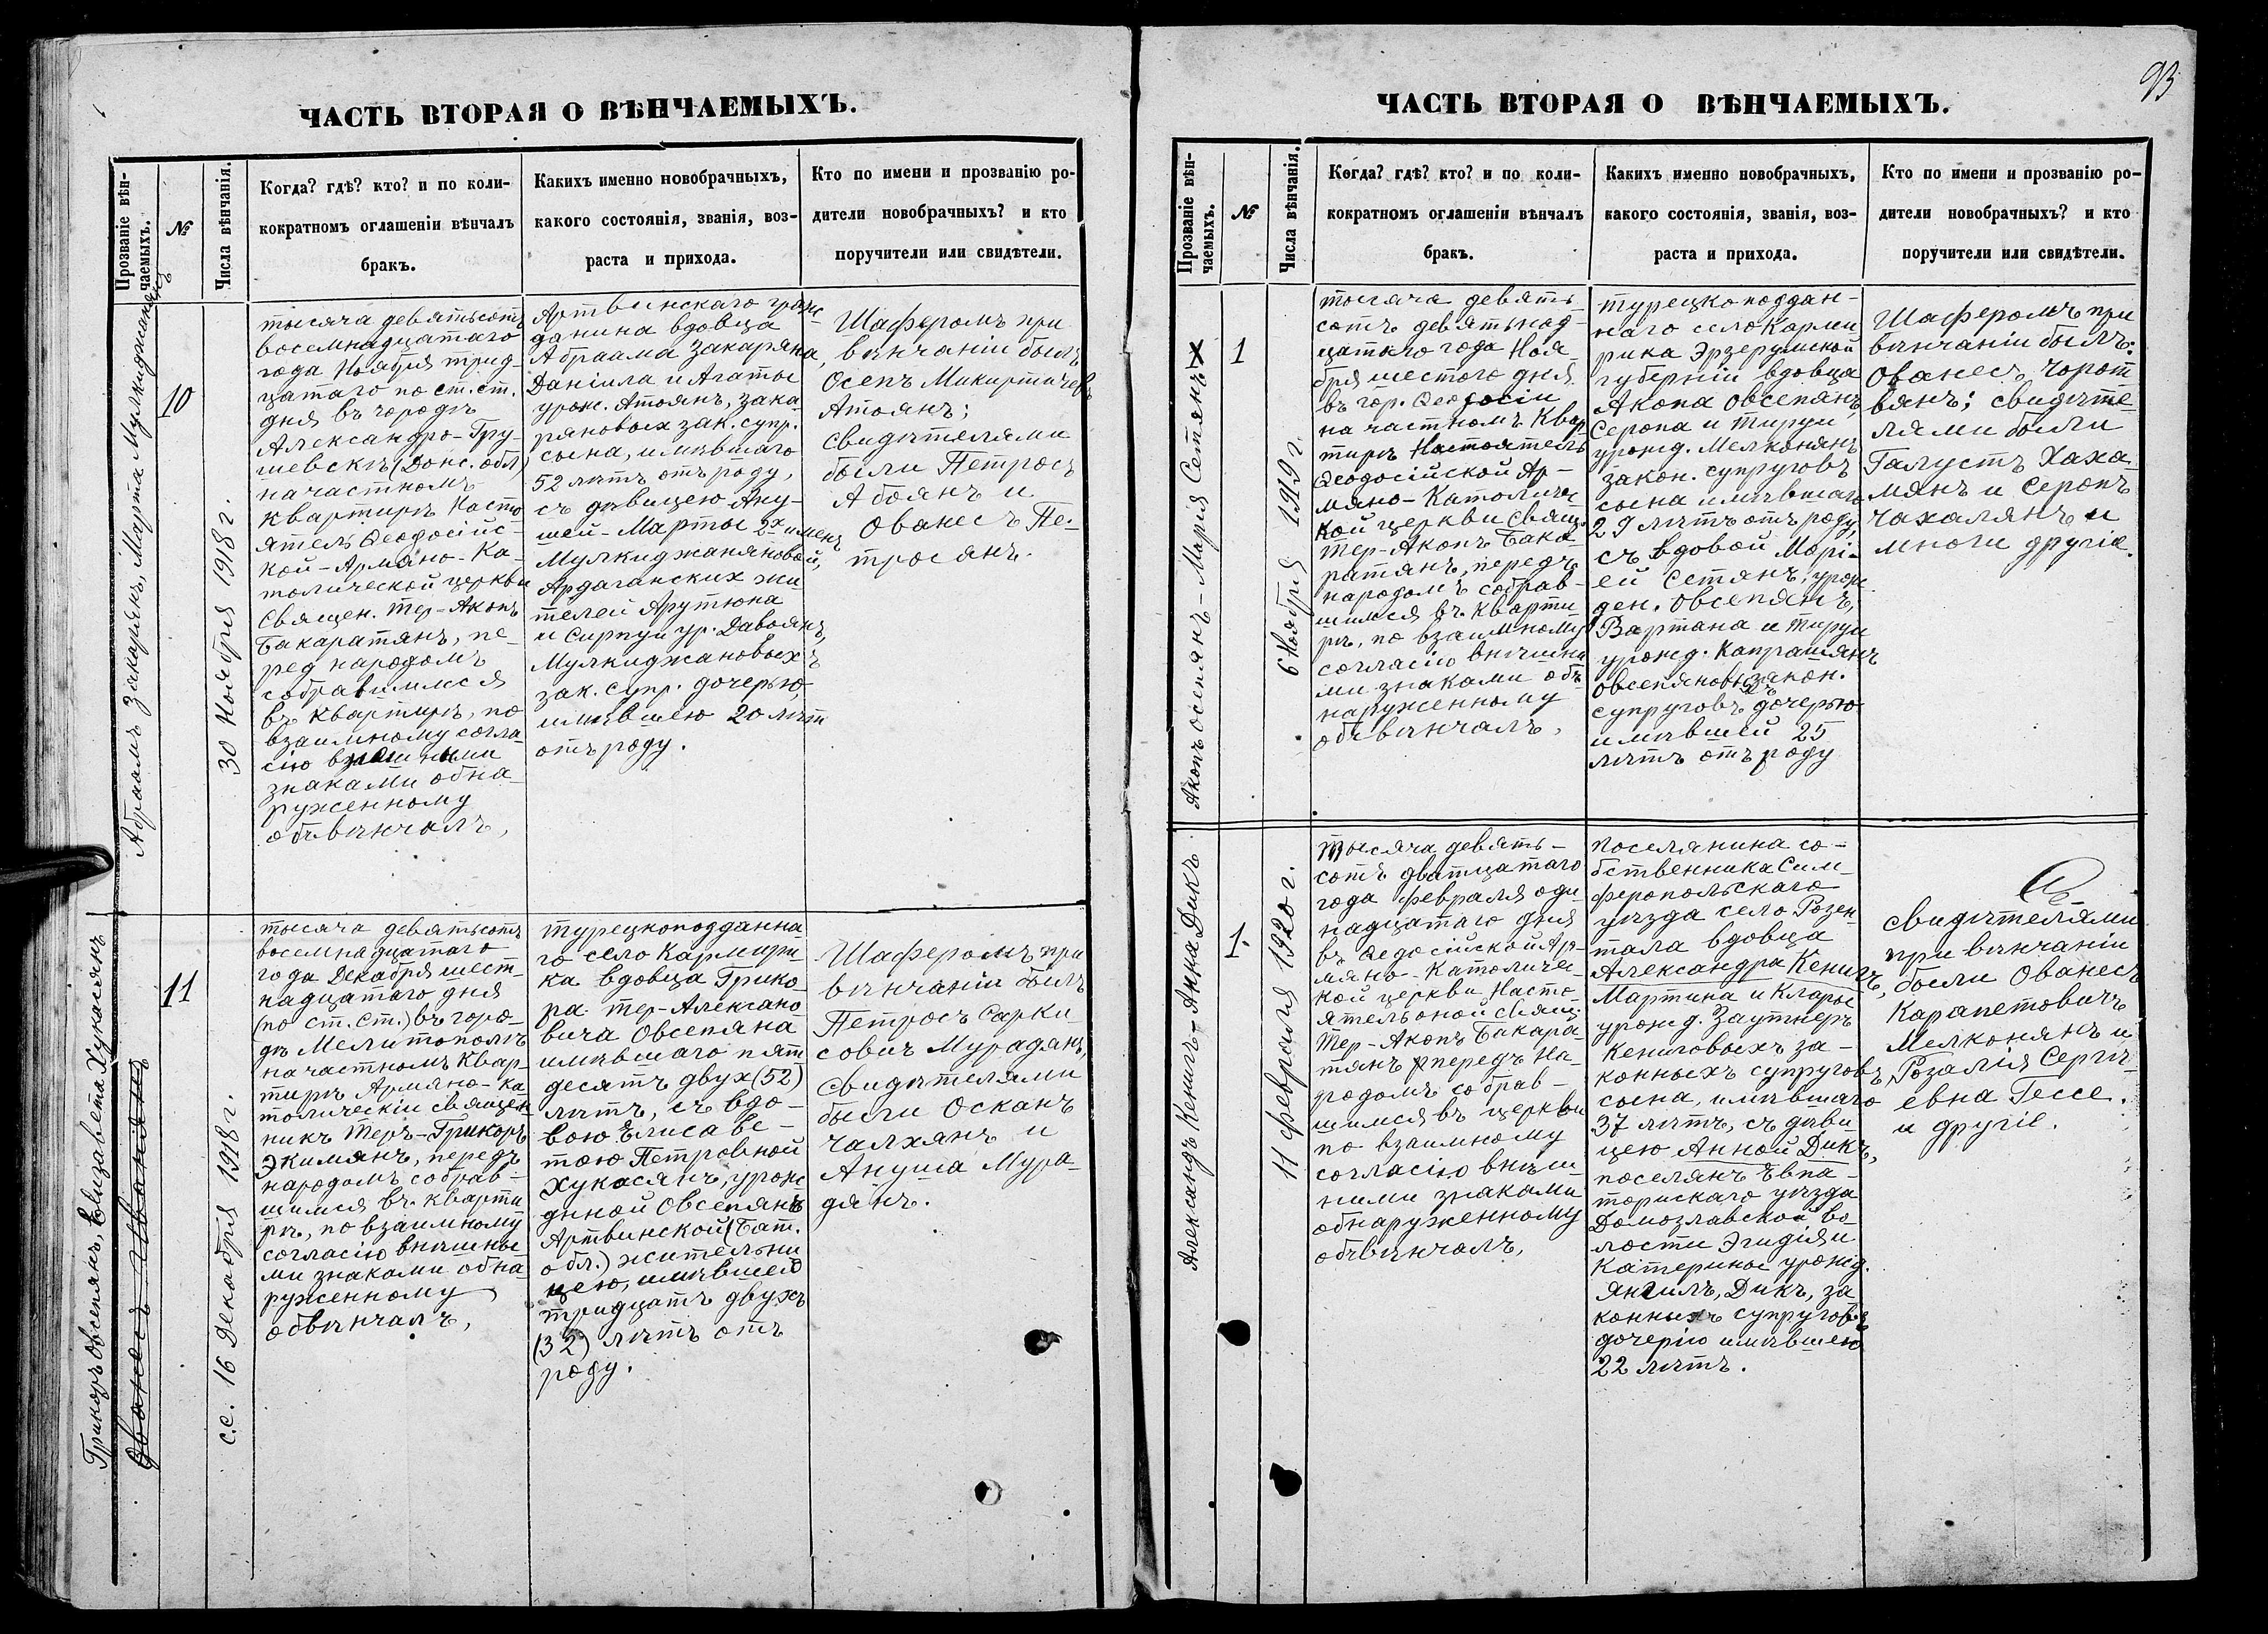 93
ЧАСТЬ ВТОРАЯ О ВѢНЧАЕМЫХЪ.
Прозваніе вѣн-
чаемыхъ.
№
Числа вѣнчанія.
Когда? гдѣ? кто? и по коли-
кократномъ оглашеніи вѣнчалъ
бракъ.
Какихъ именно новобрачныхъ,
какого состоянія, званія, воз-
раста и прихода.
Кто по имени и прозванію ро-
дители новобрачныхъ? и кто
поручители или свидѣтели.
Абраамъ Закарянъ, Марта Мулкиджанянъ
10
30 Ноября 1918 г.
тысяча девятьсотъ
восемнадцатаго
года Ноября трид-
цатаго по ст. ст.
дня въ городѣ
Александро-Гру-
шевскъ (Донс. обл)
на частномъ
квартирѣ Насто
ятель Ѳеодосійс-
кой-Армяно-Ка-
толической церкви
Священ. Тер-Акопъ
Бакаратянъ, пе-
ред народомъ
собравшимся
въ квартирѣ, по
взаимному согла-
сію внѣшними
знаками обна-
руженному
обвѣнчалъ,
Артвинскаго граж-
данина вдовца
Абраама Закаряна,
Даніила и Агаты
урож. Атоянъ, зака-
ряновыхъ зак. супр.
сына, имѣвшаго
52 лѣтъ отъ роду,
съ дѣвицею Ану-
шей-Марты 2х именъ
Мулкиджаняновой,
Ардаганскихъ жи-
телей Арутюна
и Сирпуи ур. Давоянъ,
Мулкиджановыхъ
зак. супр. дочерью,
имѣвшею 20 лѣтъ
отъ роду.
Шаферомъ при
вѣнчаніи былъ
Осепъ Микиртичевъ
Атоянъ;
свидѣтелями
были Петросъ
Абоянъ и
Ованесъ Пе-
тросянъ.
Грикоръ Овсепянъ, Елизавета Хукасянъ
11
с.с. 16 Декабря 1918 г.
тысяча девятьсотъ
восемнадцатаго
года Декабря шест-
надцатаго дня
(по ст. ст.) въ горо-
дѣ Мелитополѣ
на частномъ квар-
тирѣ Армяно-Ка
толическій священ
никъ Теръ-Грикоръ
Экимянъ, передъ
народомъ собрав-
шимся въ кварти
рѣ, по взаимному
согласію внѣшны
ми знаками обна-
руженному
обвѣнчалъ,
турецкоподданна
го село Кармири
ка вдовца Грико-
ра Тер-Алексано
вича Овсепяна
имѣвшаго пят
десятъ двух (52)
лѣтъ, съ вдо-
вою Елисаве-
тою Петровной
Хукасянъ, урож
дѣнной Овсепянъ
Артвинской (Бат.
обл.) жительни
цею, имѣвшей
тридцатъ двухъ
(32) лѣтъ отъ
роду.
Шаферомъ при
вѣнчаніи былъ
Петросъ Сарки
совичъ Мурадянъ,
свидѣтелями
были Осканъ
Чалхянъ и
Ануша Мура-
дянъ.
ЧАСТЬ ВТОРАЯ О ВѢНЧАЕМЫХЪ.
Прозваніе вѣн-
чаемыхъ.
№
Числа вѣнчанія.
Когда? гдѣ? кто? и по коли-
кократномъ оглашеніи вѣнчалъ
бракъ.
Какихъ именно новобрачныхъ,
какого состоянія, званія, воз-
раста и прихода.
Кто по имени и прозванію ро-
дители новобрачныхъ? и кто
поручители или свидѣтели.
Акопъ Осепянъ-Марія Сетянъ X
1
6 Ноября 1919 г.
тысяча девять
сотъ девятьнад-
цатаго года Ноя-
бря шестого дня
въ гор. Ѳеодосіи
на частномъ квар
тирѣ Настоятель
Ѳеодосійской Ар-
мяно-Католичес
кой церкви Свящ.
Тер-Акопъ Бака-
ратянъ, передъ
народомъ собрав-
шимся въ кварти
рѣ, по взаимному
согласію внѣшни
ми знаками объ
наруженному
обвѣнчалъ,
турецкоподдан-
наго село Карми
рика Эрзерумской
губерніи вдовца
Акопа Овсепянъ
Серопа и Тируи
урожд. Мелконянъ
закон. супруговъ
сына имѣвшаго
29 лѣтъ отъ роду,
съ вдовой Марі-
ей Сетянъ, урож
ден. Овсепянъ,
Вартана и Тируи
урожд. Капрашянъ
Овсепяновыхъ закон.
супруговъ дочерью
имѣвшей 25
лѣтъ отъ роду
Шаферомъ при
вѣнчаніи былъ:
Ованесъ Чорот
вянъ; свидѣте
лями были
Галустъ Хаха-
мянъ и Серопъ
Чахалянъ и
многи другіе.
Александъ Кенигъ-Анна Дикъ
1.
11 Февраля 1920 г.
тысяча девять-
сотъ дватцатаго
года Февраля оди
надцатаго дня
въ Ѳедосійской Ар-
мяно-Католичес-
кой церкви Насто-
ятель оной Свящ.
Тер-Акопъ Бакара
тянъ передъ на-
родомъ собрав-
шимся въ церкви
по взаимному
согласію внѣш-
ними знаками
обнаруженному
обвѣнчалъ,
Поселянина со-
бственника Сим-
феропольскаго
уѣзда село Розен-
тала вдовца
Александра Кенигъ,
Мартина и Клары
урожд. Заутнеръ
Кениговыхъ за-
конныхъ супруговъ,
сына, имѣвшаго
37 лѣтъ, съ дѣви
цею Анной Дикъ,
поселянъ Евпа-
торискаго уѣзда
Домозлавской во
лости Эгидія и
Катерины урожд.
Янгилъ, Дикъ, за
конныхъ супруговъ
дочерію имѣвшею
22 лѣтъ.
Свидѣтелями
при вѣнчаніи
были Ованесъ
Карапетовичъ
Мелконянъ и
Розалія Сергѣ-
евна Гессе.
и другіе.